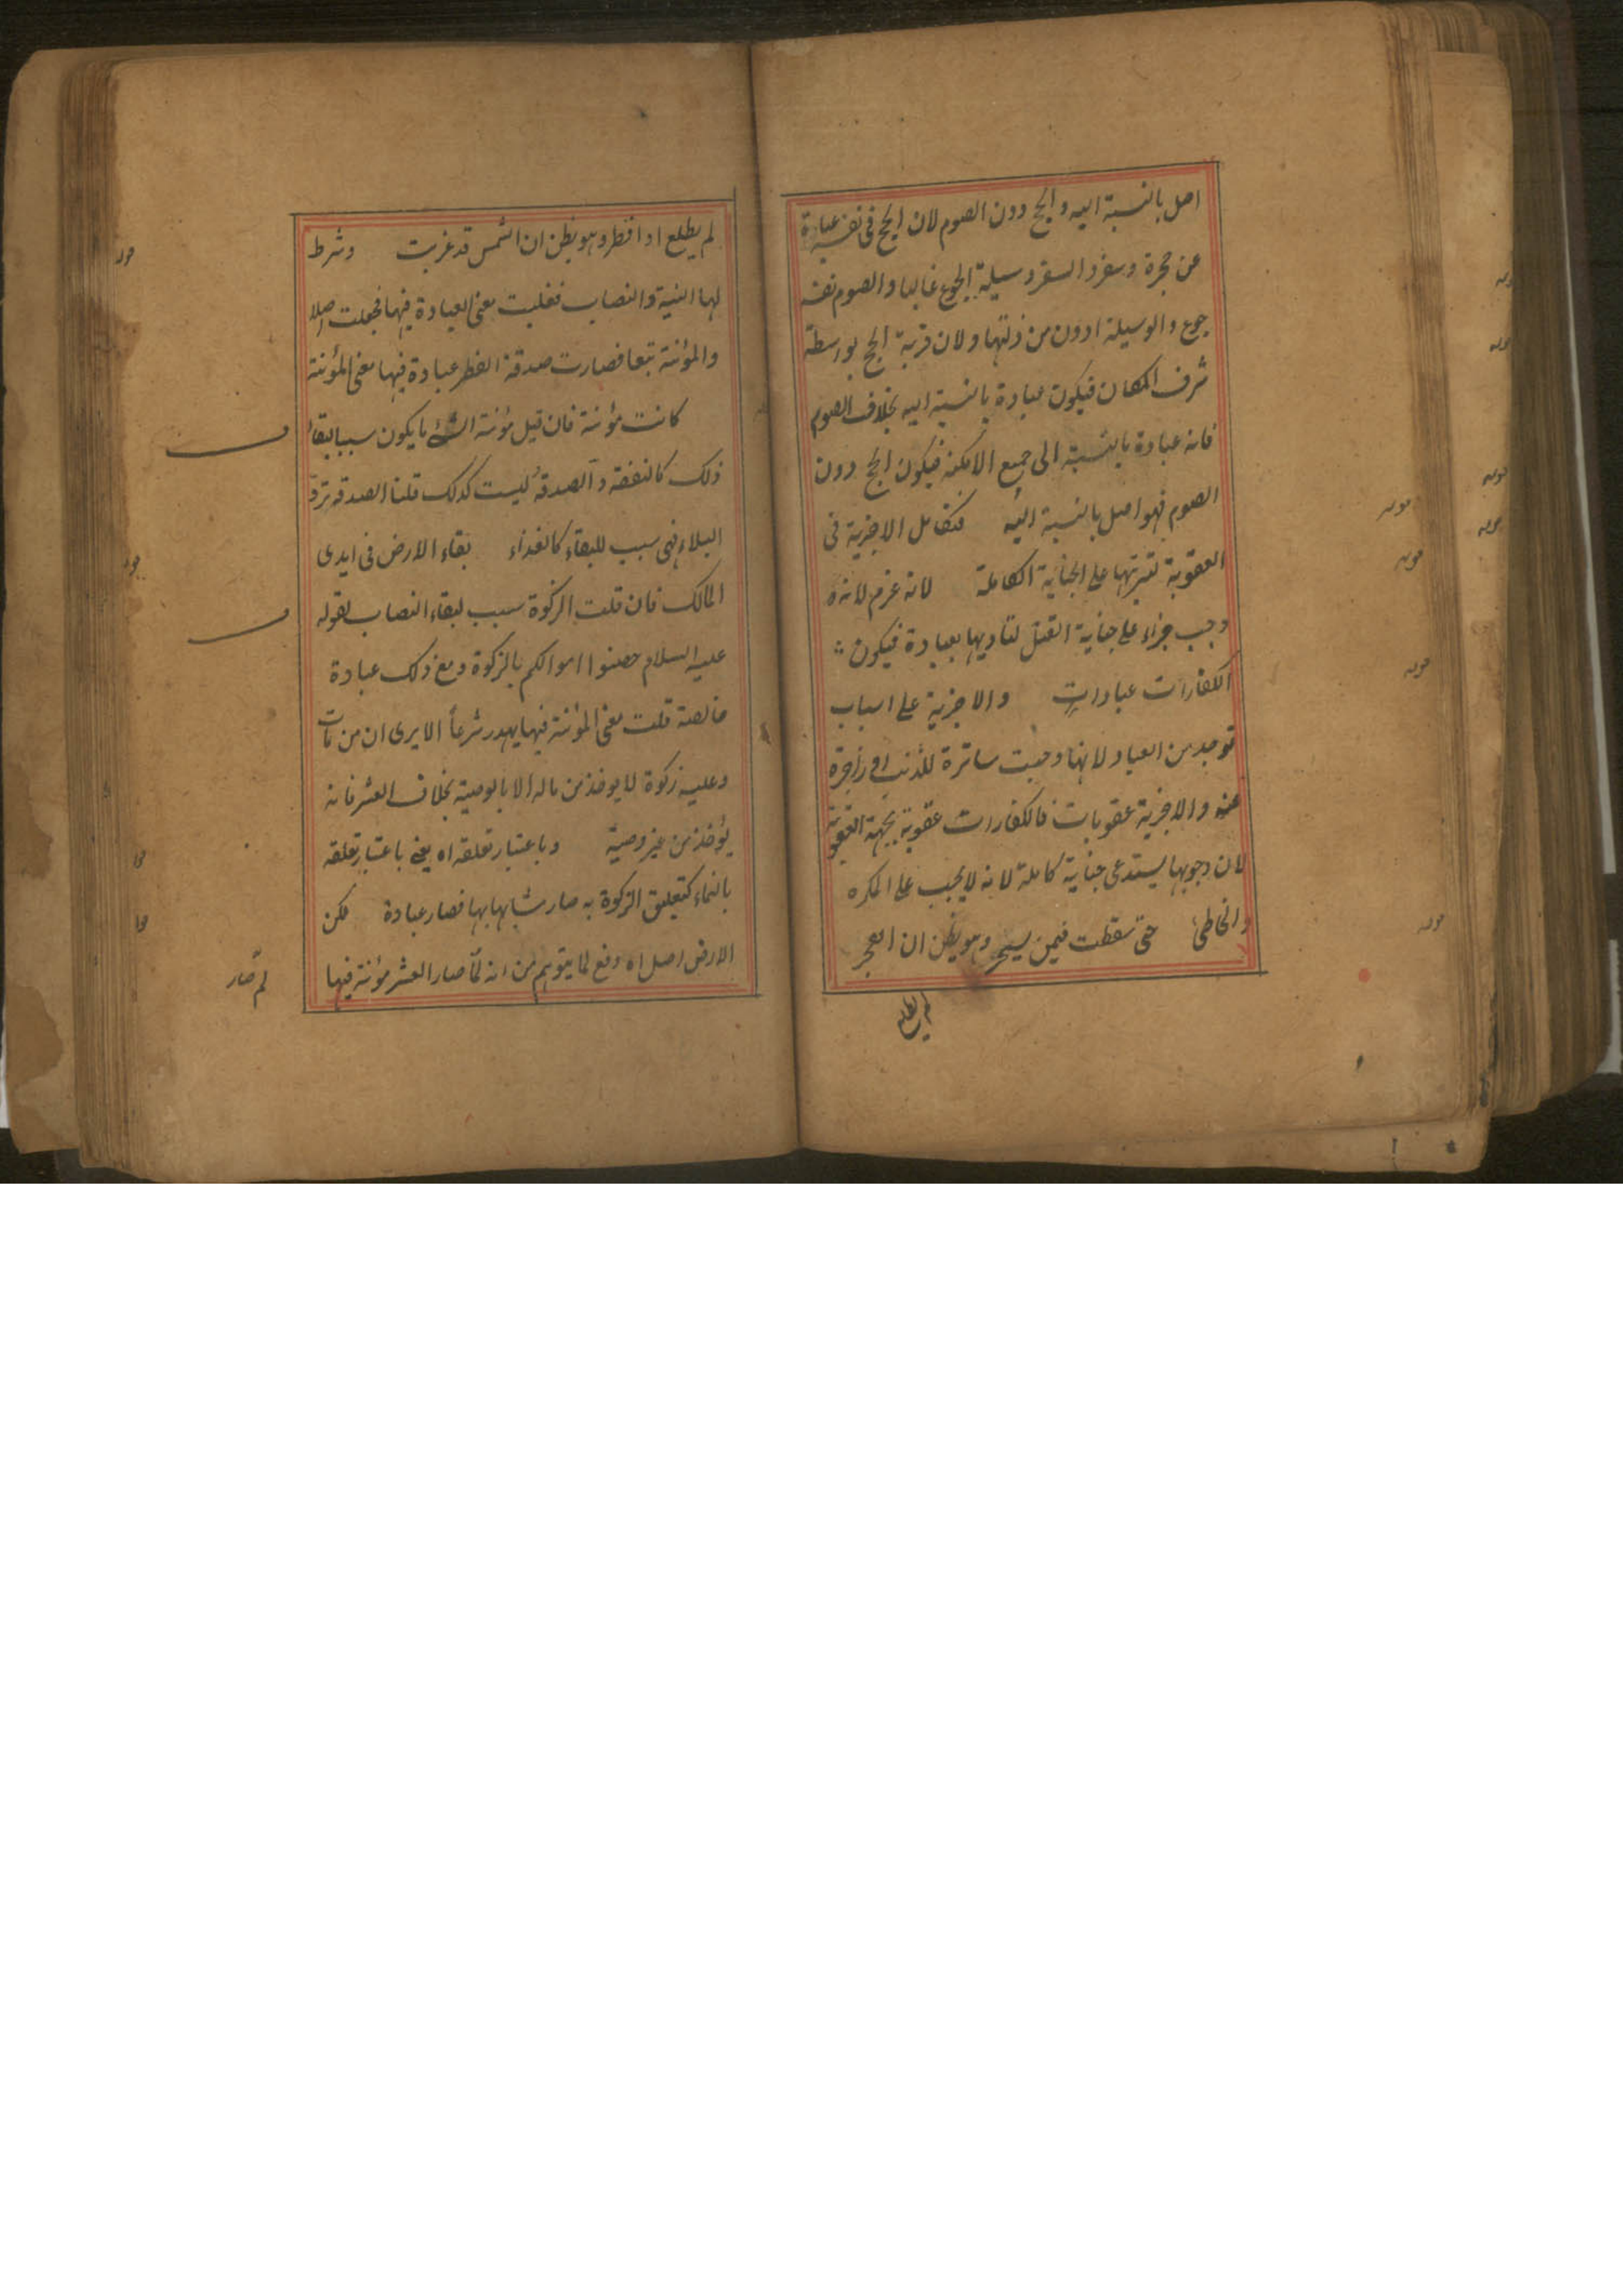 اصل بالنسبة اليه والحج دون الصوم لان الحج فى نفسه عبادة
عن هجرة وسفر والسفر وسيلة الجوع غالبا والصوم نفسه
جوع والوسيلة ادون من ولان قربة الحج بواسطة
شرف المكان فيكون عبادة بالنسبة اليه بخلاف الصوم
فانه عبادة بالنسبة الى جميع الامكنة فيكون الحج دون
الصوم فهو اصل بالنسبة اليه فتكامل الاجزية فى
العقوبة لترتبها على الجناية الكاملة لانه غرم لانه
وجب جزاء على جناية القتل لتاديها بعبادة فيكون
الكفارات عبادات والاجزية على اسباب
توجد من العباد ولانها وجبت ساترة للذنب او زاجرة
عنه والاجزية عقوبات فالكفارات عقوبة بجهة العقوبة
لان وجوبها يستدعى جناية كاملة لانه لا يجب على المكره
والخاطئ حتى سقطت فيمن يسحر وهو يظن ان الفجر
لم يطلع
لم يطلع او افطر وهو يظن ان الشمس قد غربت وشرط
لها النية والنصاب فغلبت معنى العبادة فيها فجعلت اصلا
والمؤنة تبعا فصارت صدقة الفطر عبادة فيها معنى المؤنة
كانت مؤنة فان قيل مؤنة الشئ ما يكون سببا لبقاء
ذلك كالنفقة والصدقة ليست كذلك قلنا الصدقة ترد
البلاء فهى سبب للبقاء كالغذاء بقاء الارض فى ايدى
المالك فان قلت الزكوة سبب لبقاء النصاب لقوله
عليه السلام حصنوا اموالكم بالزكوة ومع ذلك عبادة
خالصة قلت معنى المؤنة فيها يهدر شرعاً الا يرى ان من مات
وعليه زكوة لا يوخذ من ماله الا بالوصية بخلاف العشر فانه
يؤخذ من غير وصية وباعتبار تعلقه اه يعنى باعتبار تعلقه
بالنماء كتعليق الزكوة به صار مشابها بها فصار عبادة لكن
الارض اصل اه دفع لما يتوهم من انه لمّا صار العشر مؤنة فيها
لم صار